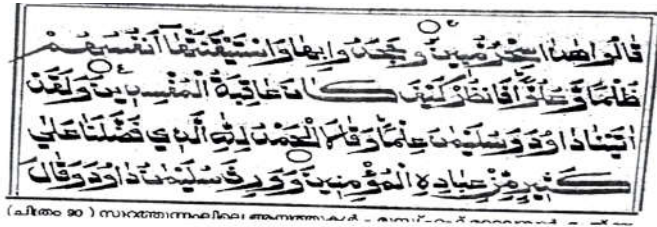 قَالُوا هَٰذَا سِحْرٌ مُبِينٌ وَجَحَدُوا بِهَا وَاسْتَيْقَنَتْهَا أَنْفُسُهُمْ
ظُلْمًا وَعُلُوًّا فَانْظُرْ كَيْفَ كَانَ عَاقِبَةُ الْمُفْسِدِينَ وَلَقَدْ
اٰتَيْنَا دَاوُدَ وَسُلَيْمٰنَ عِلْمًا وَقَالَا الْحَمْدُ لِلّٰهِ الَّذِي فَضَّلَنَا عَلٰى
كَثِيرٍ مِنْ عِبَادِهِ الْمُؤْمِنِينَ وَوَرِثَ سُلَيْمٰنُ دَاوُدَ وَقَالَ
(ചിത്രം 90)